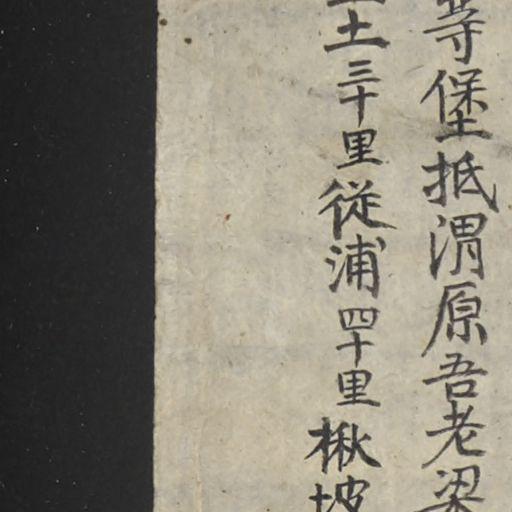 等堡抵渭原吾老梁
土三十里從浦四十里楸坡